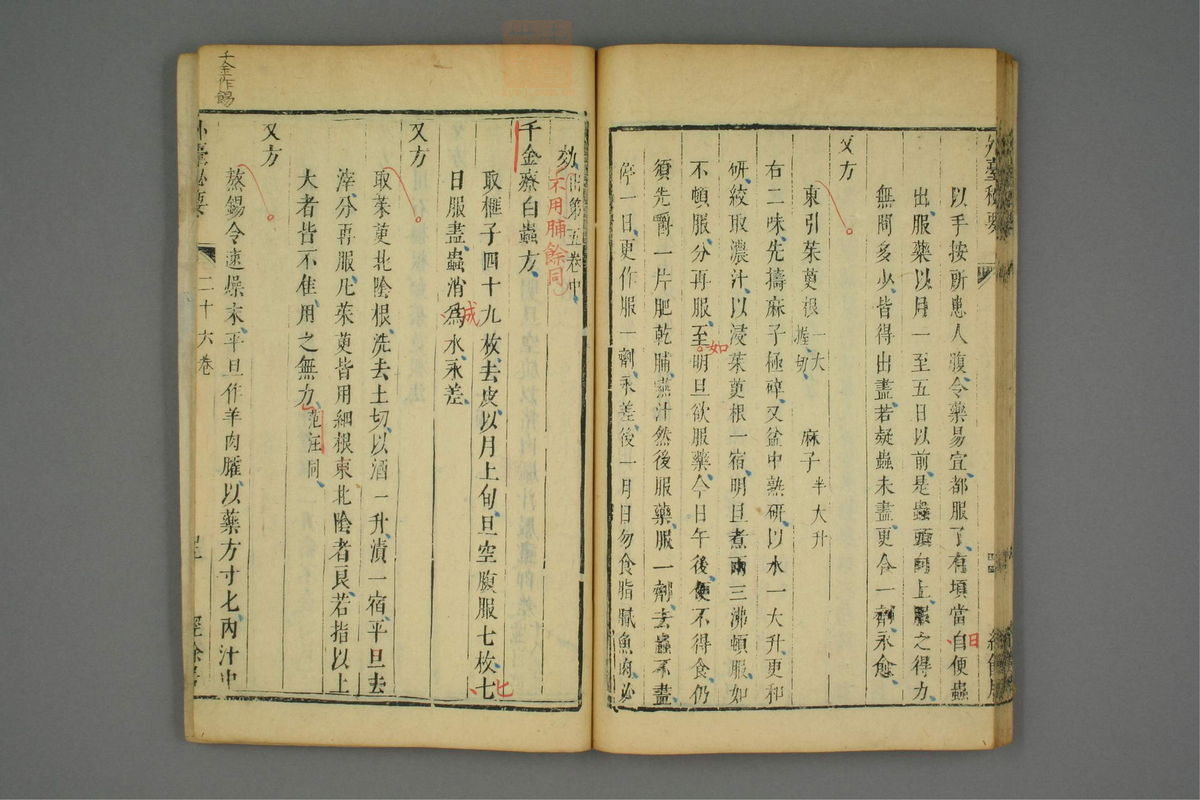 外臺秘要
以手按所患人腹令藥易宣都服了有頃當自便蟲
出服藥以月一至五日以前是蟲頭向上服之得力
無問多少皆得出盡若疑蟲未盡更合一劑永愈
又方
東引茱萸根一大握切 麻子半大升
右二味先擣麻子極碎又盆中熟研以水一大升更和
研絞取濃汁以浸茱萸根一宿明旦煮兩三沸頓服如
不頓服分再服至明旦欲服藥今日午後便不得食仍
須先嚼一片肥乾脯燕汁然後服藥服一劑去蟲不盡
停一日更作服一劑永差後一月日勿食脂膩魚肉必
如
日
效出第五卷中
不用脯餘同
千金療白蟲方
取榧子四十九枚去皮以月上旬旦空腹服七枚七
日服盡蟲消爲水永差
成
七
又方
取茱萸北陰根洗去土切以酒一升漬一宿平旦去
滓分再服凡茱萸皆用細根東北陰者良若指以上
大者皆不佳用之無力范汪同
又方
熬錫令速燥末平旦作羊肉臛以藥方寸匕內汁中
千金作餳
外臺秘要
二十六卷